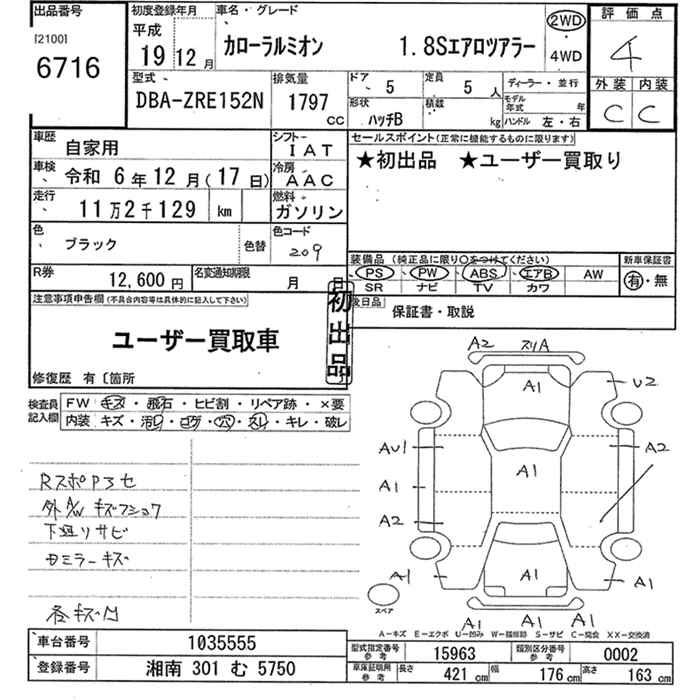 出品番号
[2100]
6716
初度登録年月
平成
19 12月
車名・グレード
カローラルミオン 1.8Sエアロツアラー
2WD
・
4WD
評価点
4
外装 内装
C C
型式
DBA-ZRE152N
排気量
1797
CC
ドア 5
定員 5 人
形状 ハッチB
積載 kg
ディーラー・並行
モデル年式 年
ハンドル 左・右
車歴 自家用
シフト IAT
車検 令和 6年12月(17日)
冷房 AAC
走行 11万2千129 km
燃料 ガソリン
色 ブラック 色替
色コード 209
R券 12,600円
名変通知期限 月 日
セールスポイント(正常に機能するものに限ります)
★初出品 ★ユーザー買取り
装備品(純正品に限り○をつけてください)
PS PW ABS エアB AW
SR ナビ TV カワ
新車保証書
有・無
後日品
保証書・取説
注意事項申告欄(不具合内容等は具体的に記入して下さい)
ユーザー買取車
修復歴 有〔箇所
初出品
検査員記入欄
FW キズ・飛石・ヒビ割・リペア跡・×要
内装 キズ・汚レ・コゲ・穴・スレ・キレ・破レ
RスポPヨセ
外A/W キズフショク
下廻リサビ
ドミラーキズ
各キズ凹
A2 スリA
A1
U2
AU1
A1
A2
A1
A2
A1
A1
A1
A1 A1
スペア
A−キズ E−エクボ U−凹み W−補修跡 S−サビ C−腐食 XX−交換済
車台番号 1035555
登録番号 湘南 301 む 5750
型式指定番号 参考 15963
類別区分番号 参考 0002
車庫証明用 参考 長さ 421 cm 幅 176 cm 高さ 163 cm